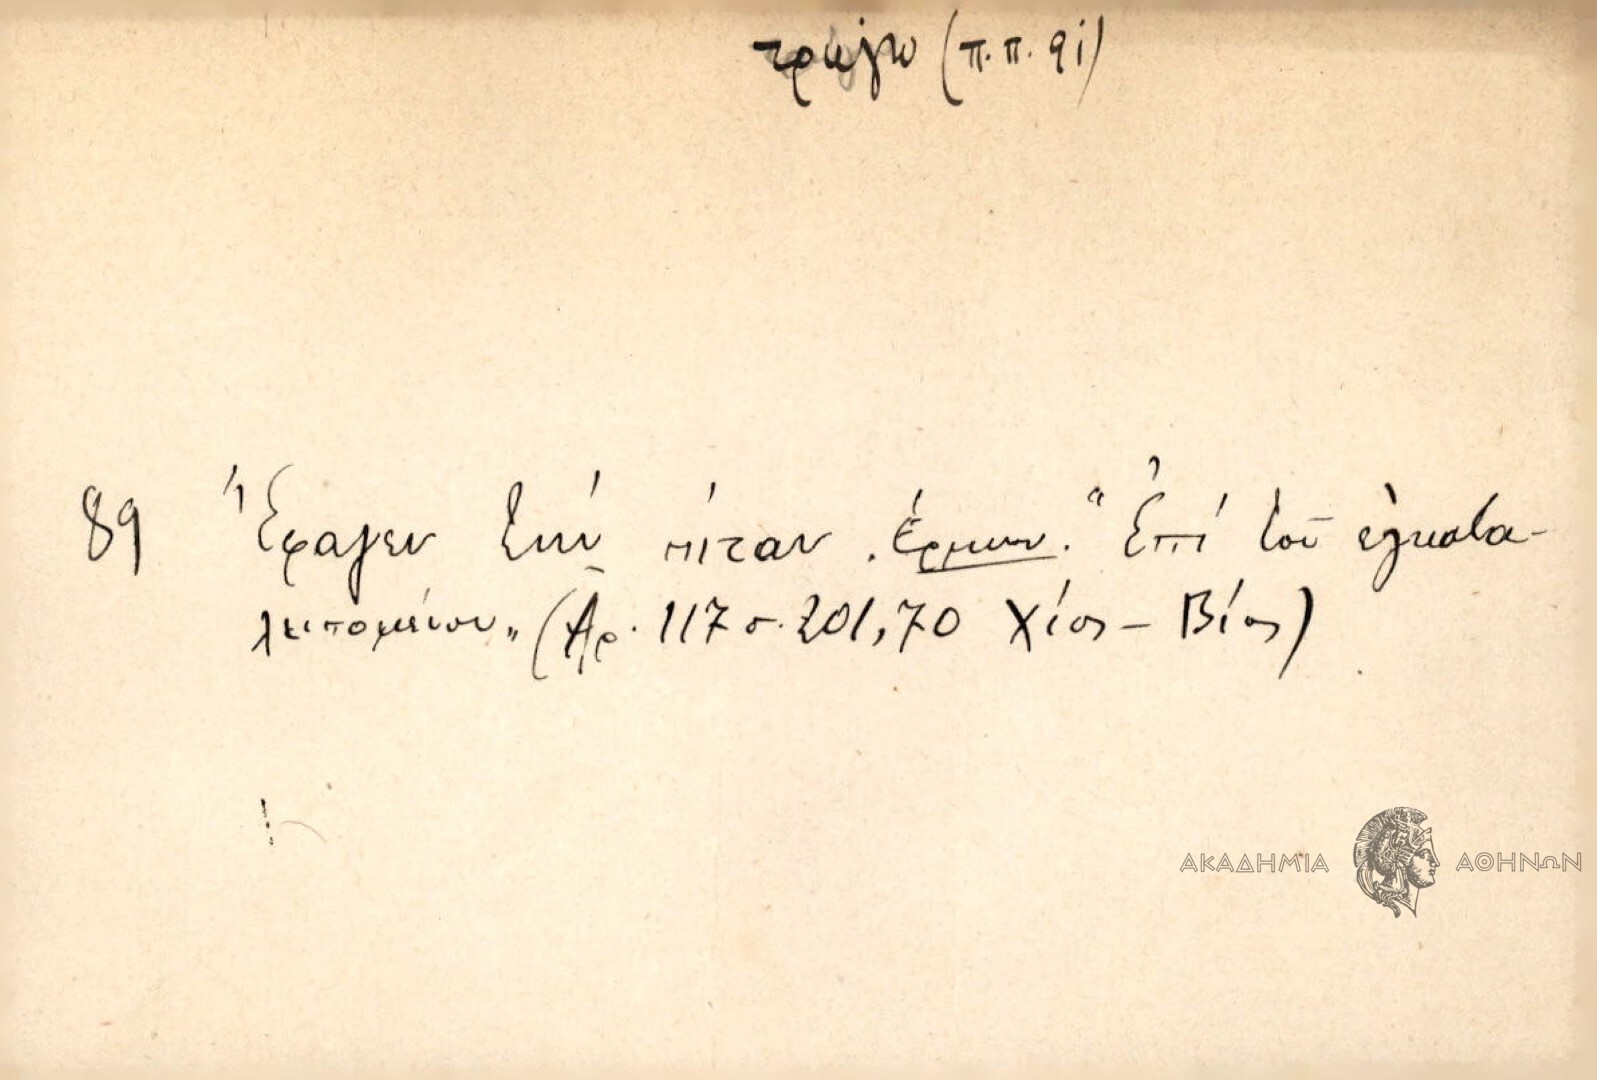 τρώγω (π.π. 91)
89 Ἔφαγεν τὴν πίταν. Ἑρμην. "Ἐπὶ τοῦ ἐγκατα-
λειπομένου„ (Ἀρ. 117 σ. 201, 70 Χίος - Βίος)
ΑΚΑΔΗΜΙΑ ΑΘΗΝΩΝ